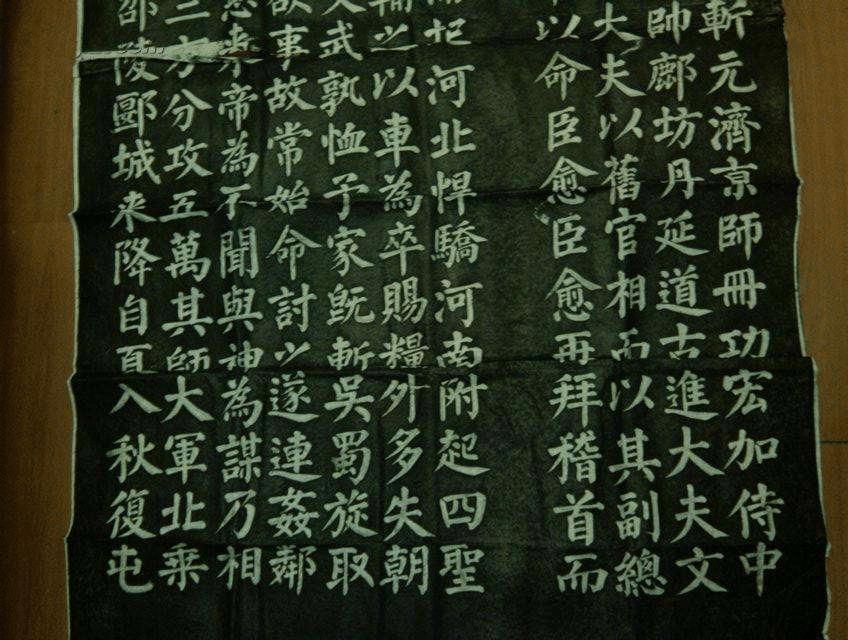 斬元濟京師冊功宏加侍中
帥鄜坊丹延道古進大夫文
大夫以舊官相而以其副總
以命臣愈臣愈再拜稽首而
而圮河北悍驕河南附起四聖
輸之以車為卒賜糧外多失朝
文武孰恤予家既斬吳蜀旋取
欲事故常始命討之遂連姦鄰
來帝為不聞與神為謀乃相
三方分攻五萬其師大軍北乘
邵陵郾城来降自夏入秋復屯